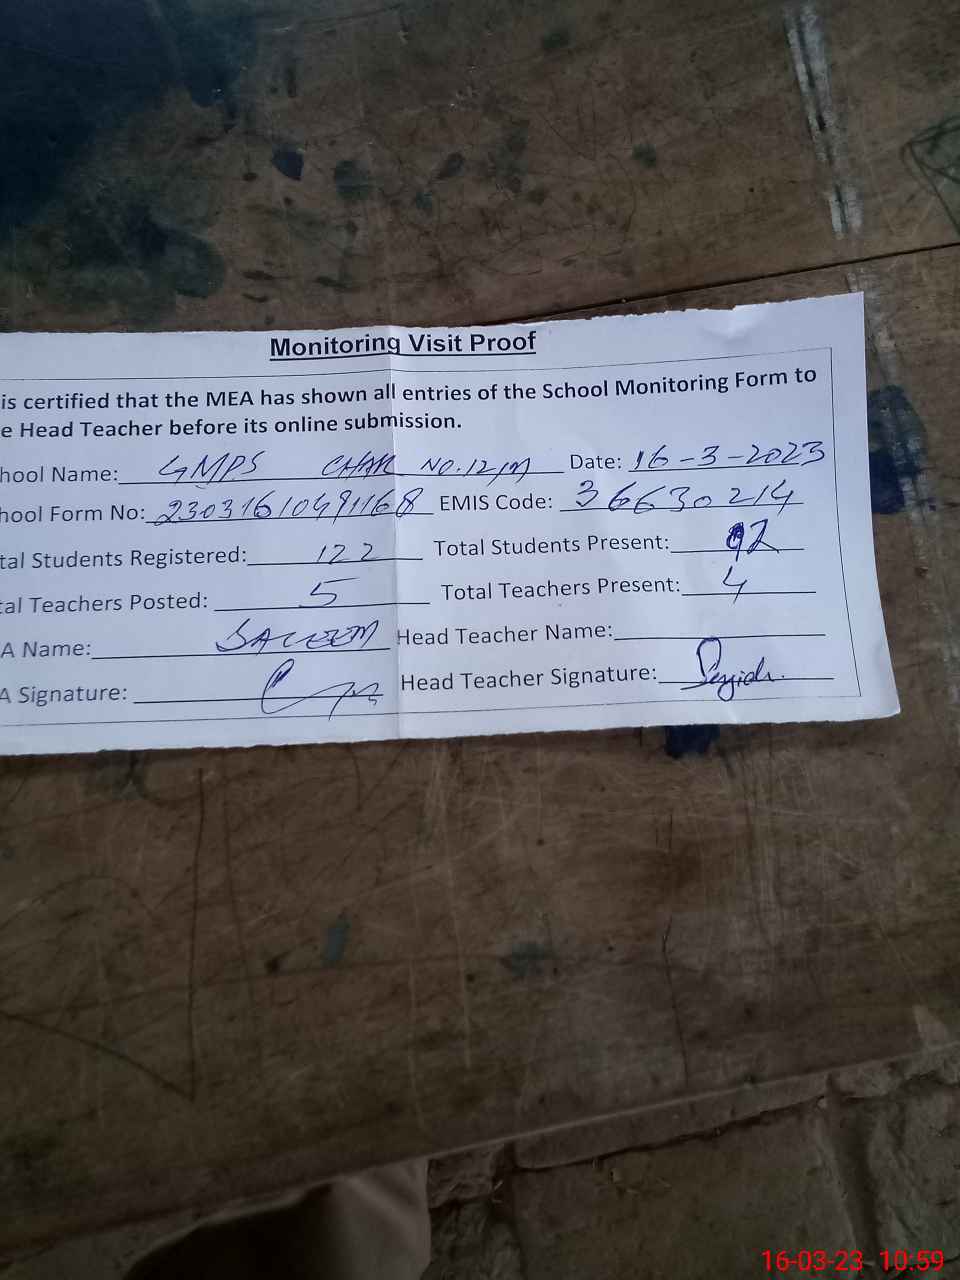 Monitoring Visit Proof
is certified that the MEA has shown all entries of the School Monitoring Form to
e Head Teacher before its online submission.
hool Name: GMPS CHAK NO.12/M Date: 16-3-2023
hool Form No: 23031610491168 EMIS Code: 36630214
tal Students Registered: 122 Total Students Present: 92
tal Teachers Posted: 5 Total Teachers Present: 4
A Name: SALEEM Head Teacher Name:
A Signature: Head Teacher Signature:
16-03-23 10:59